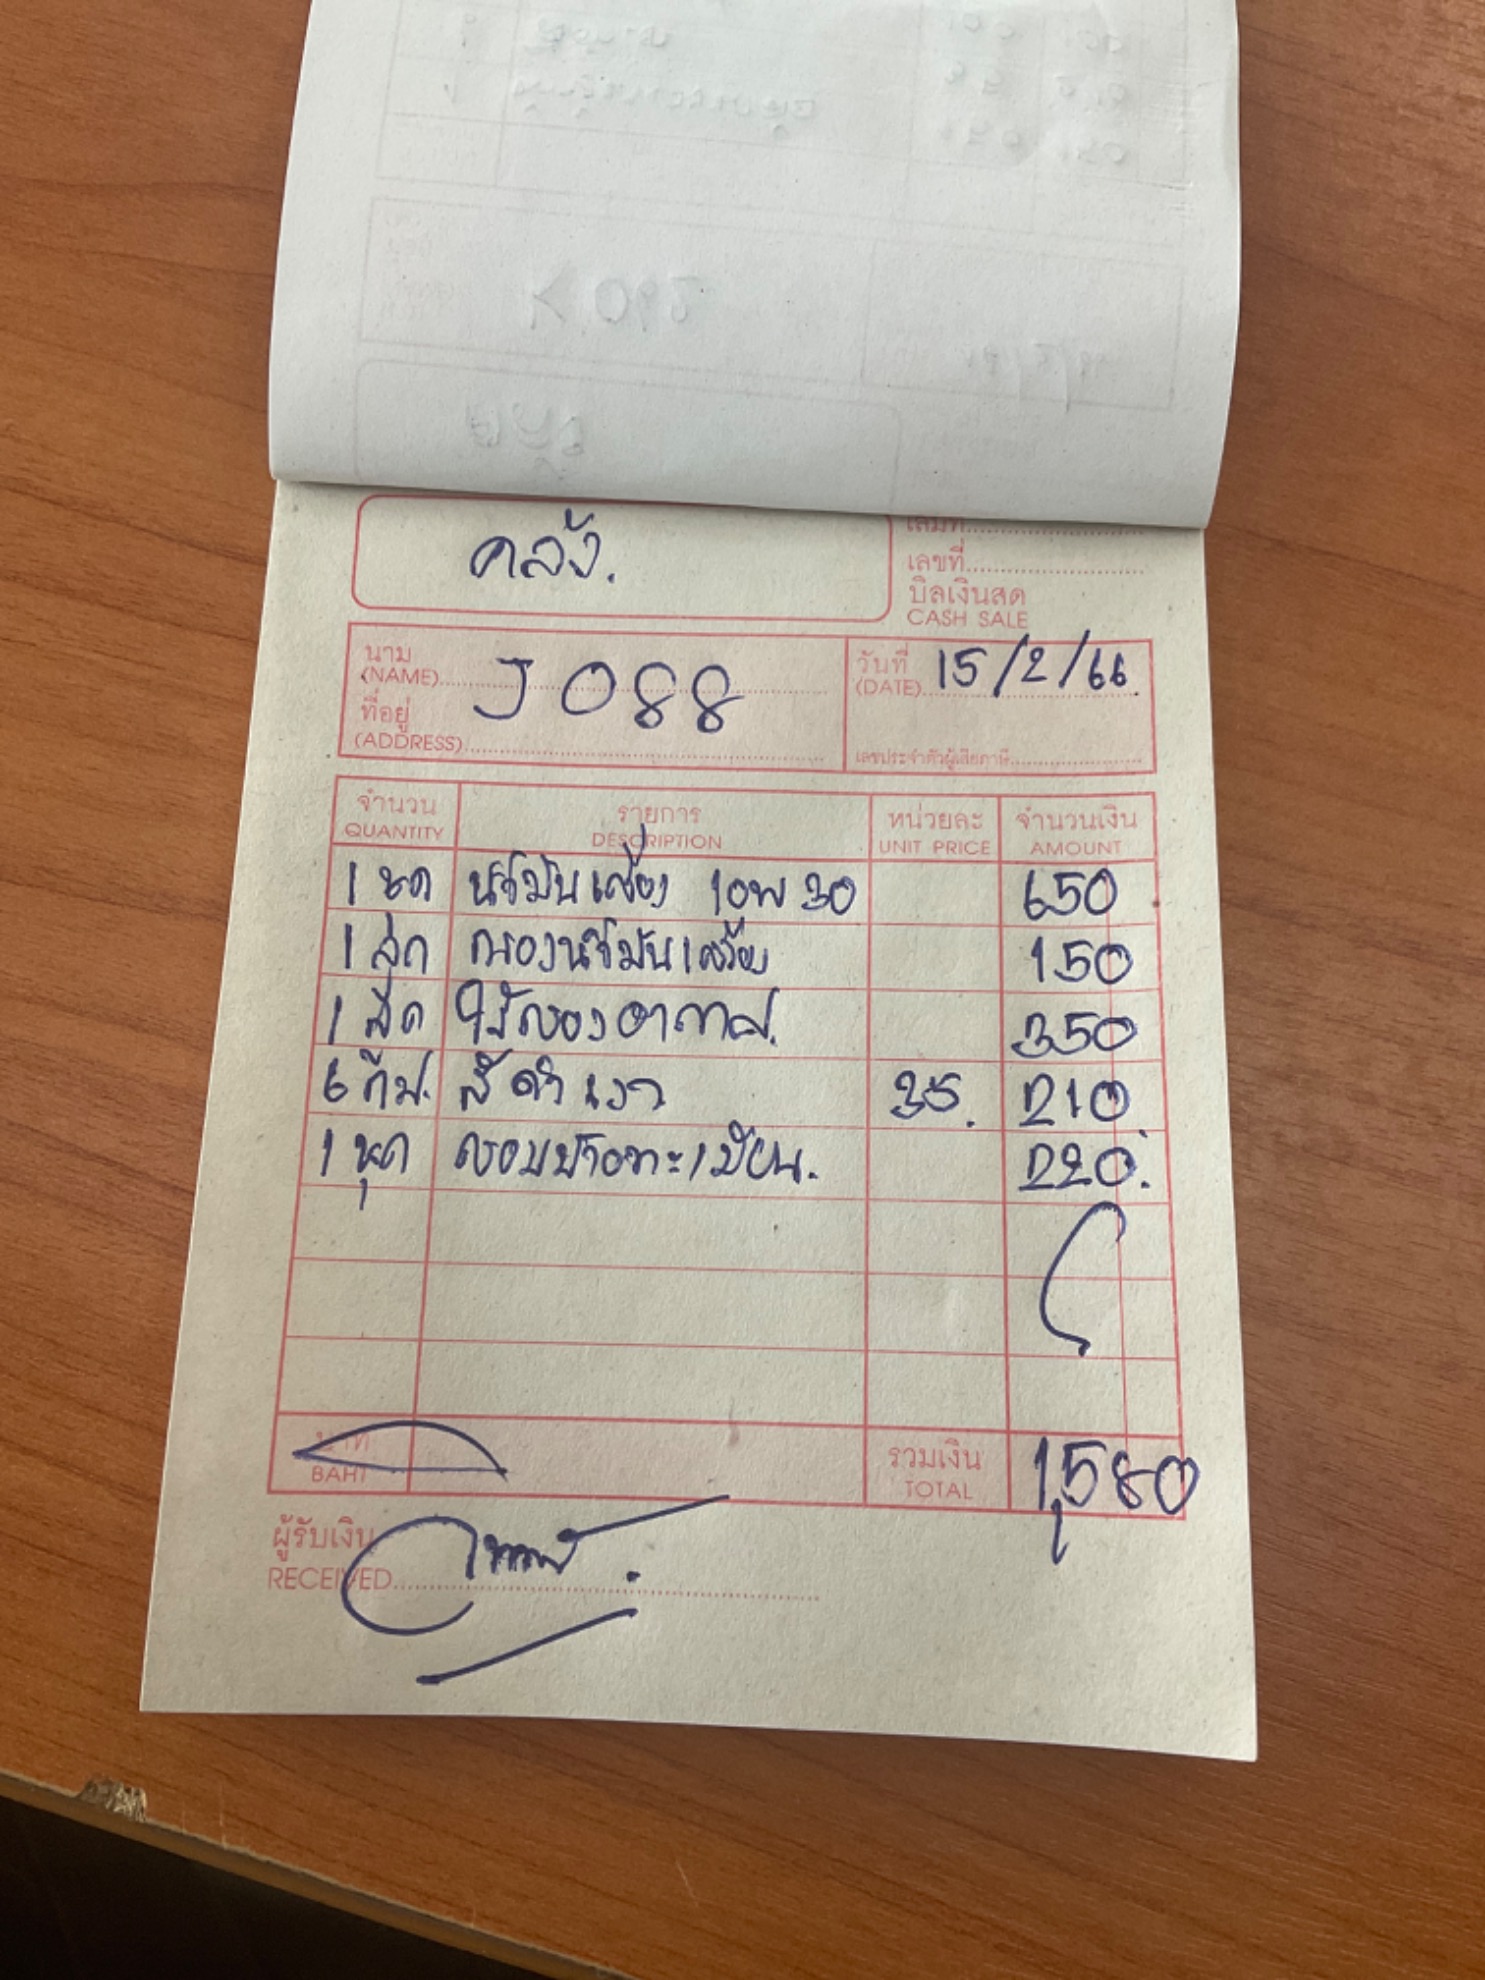 คลัง.
เล่มที่
เลขที่
บิลเงินสด
CASH SALE
นาม
(NAME)
J088
ที่อยู่
(ADDRESS)
วันที่ 15/2/66
(DATE)
เลขประจำตัวผู้เสียภาษี
จำนวน รายการ หน่วยละ จำนวนเงิน
QUANTITY DESCRIPTION UNIT PRICE AMOUNT
1 ชุด น้ำมันเครื่อง 10W30 650
1 ลูก กรองน้ำมันเครื่อง 150
1 ลูก ไส้กรองอากาศ. 350
6 กป. สีดำเงา 35. 210.
1 ชุด กรอบป้ายทะเบียน. 220.
บาท
BAHT
รวมเงิน 1,580
TOTAL
ผู้รับเงิน
RECEIVED